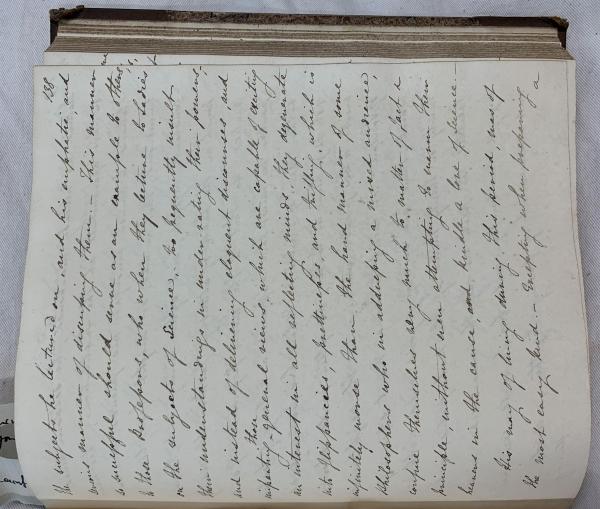 158
the subjects he lectured on, and his emphatic, and
manner of discussing them. — This manner
so successful should serve as an example to others,
to those Professors, who when they lecture to Ladies
on the subjects of Science, too frequently insult
their understandings in underrating their powers;
and instead of delivering eloquent discourses and
imparting those general views which are capable of exciting
an interest in all reflecting minds, they degenerate
into flippancies, prettinesses and trifling which is
infinitely worse than the hard manner of some
Philosophers who in addressing a mixed audience,
confine themselves very much to matter of fact &
principle, without even attempting to warm their
hearers in the cause, and kindle a love of Science —
His way of living during this period, was of
the most easy kind — excepting when preparing a